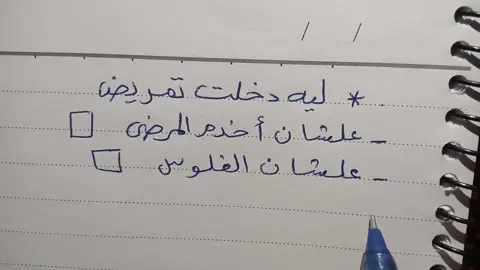 / /
* ليه دخلت تمريض
- علشان أخدم المرضى □
- علشان الفلوس □